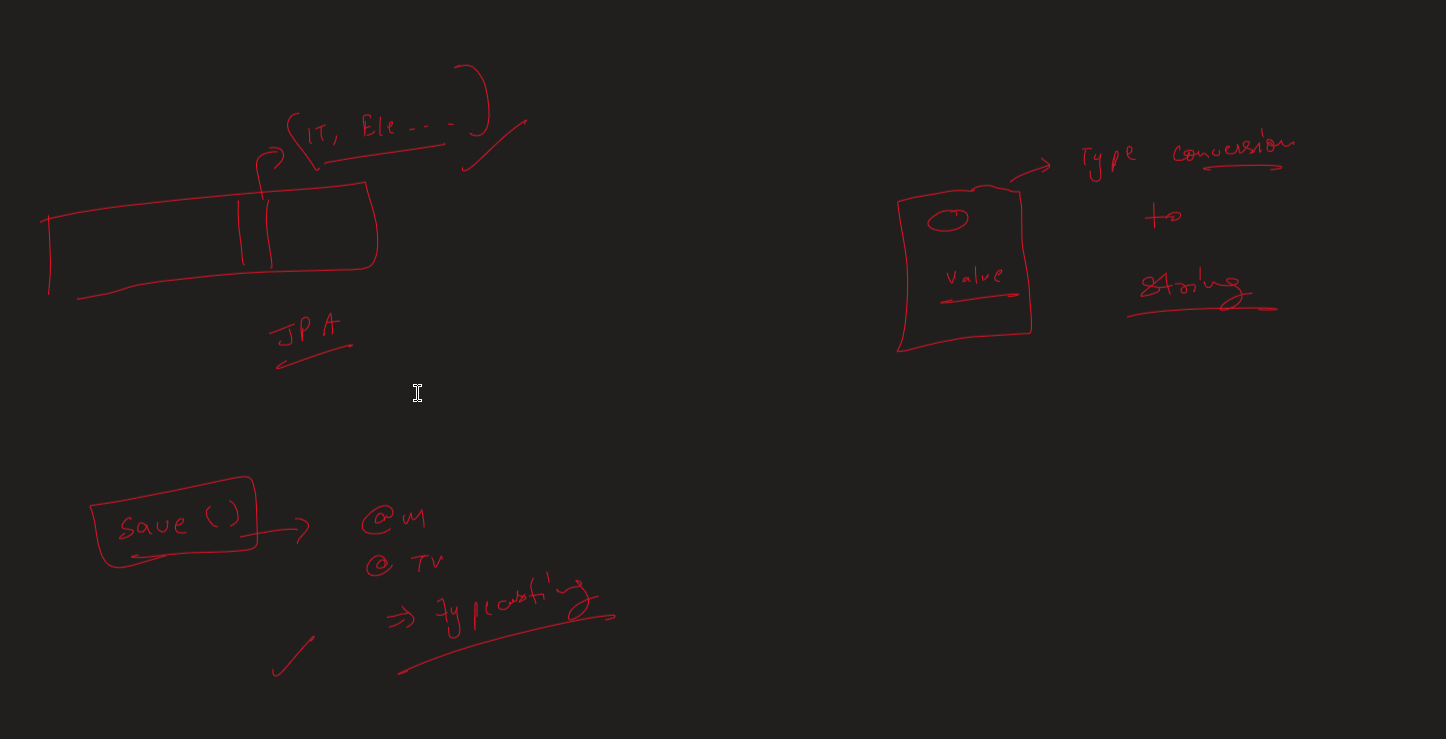 (IT, Ele ....)
JPA
Type conversion
to
String
value
save ()
@M
@ TV
⇒ typecasting